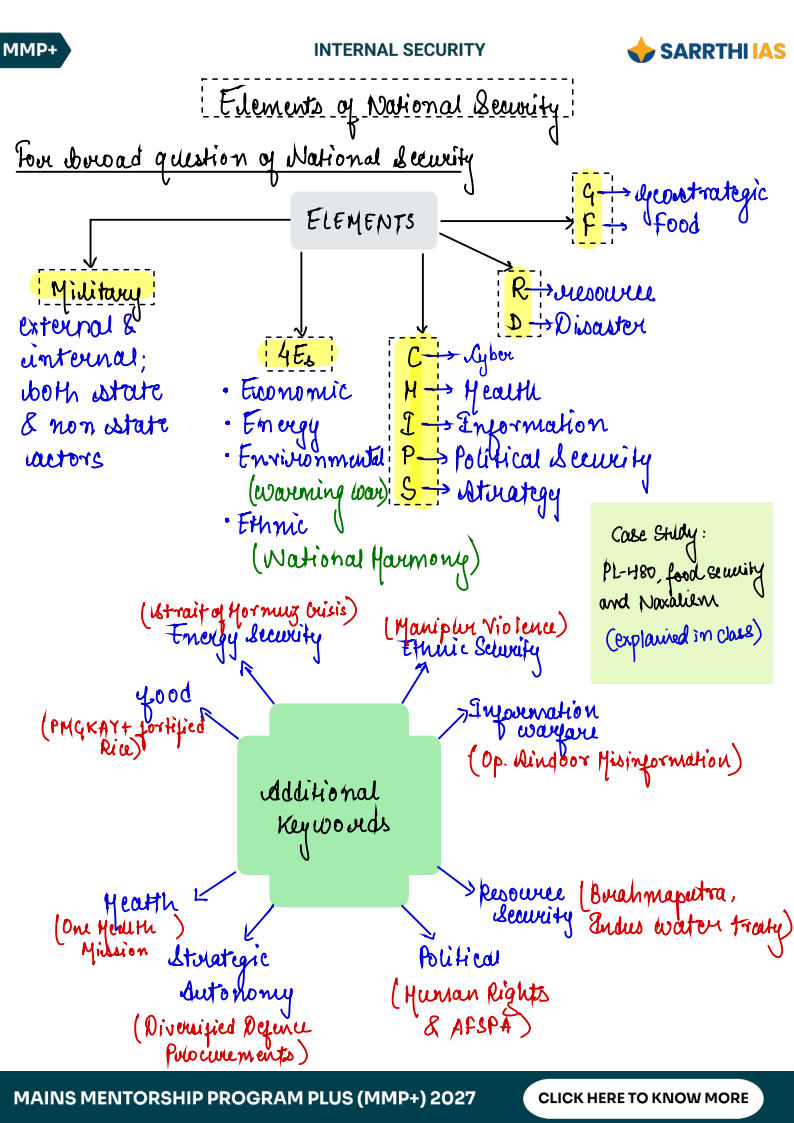 MMP+
INTERNAL SECURITY
SARRTHI IAS
Elements of National Security
For broad question of National Security
ELEMENTS
G → Geostrategic
F → Food
Military
external &
internal;
both state
& non state
actors
R → resource
D → Disaster
4Es
• Economic
• Energy
• Environmental
(warming war)
• Ethnic
(National Harmony)
C → Cyber
H → Health
I → Information
P → Political Security
S → Strategy
Case Study:
PL-480, food security
and Naxalism
(explained in class)
(Strait of Hormuz Crisis)
Energy Security
(Manipur Violence)
Ethnic Security
food
(PMGKAY + fortified
Rice)
Information
warfare
(Op. Sindoor Misinformation)
Additional
Keywords
Health
(One Health )
Mission
Resource
Security
(Brahmaputra,
Indus water treaty)
Strategic
Autonomy
(Diversified Defence
Procurements)
Political
(Human Rights
& AFSPA)
MAINS MENTORSHIP PROGRAM PLUS (MMP+) 2027
CLICK HERE TO KNOW MORE